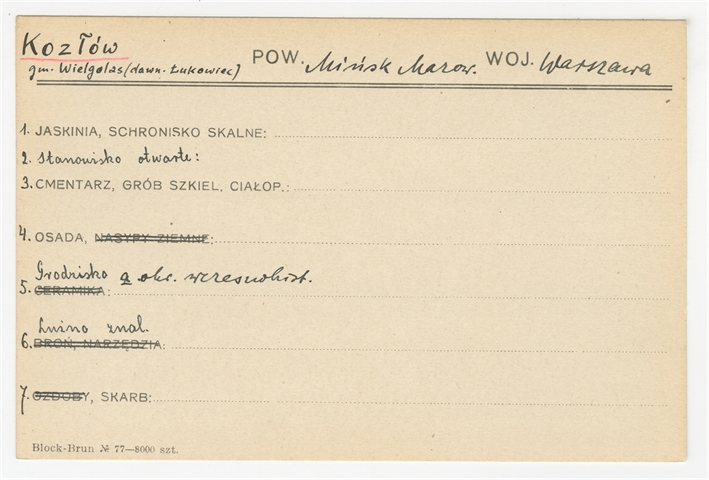 Kozłów POW. Mińsk Mazow. WOJ. Warszawa
gm. Wielgolas (dawn. Łukowiec)
1. JASKINIA, SCHRONISKO SKALNE:
2. Stanowisko otwarte:
3. CMENTARZ, GRÓB SZKIEL. CIAŁOP.:
4. OSADA, NASYPY ZIEMNE:
Grodzisko a okr. wczesnohist.
5. CERAMIKA:
Luźno znal.
6. BROŃ, NARZĘDZIA:
7. OZDOBY, SKARB:
Block-Brun № 77—8000 szt.